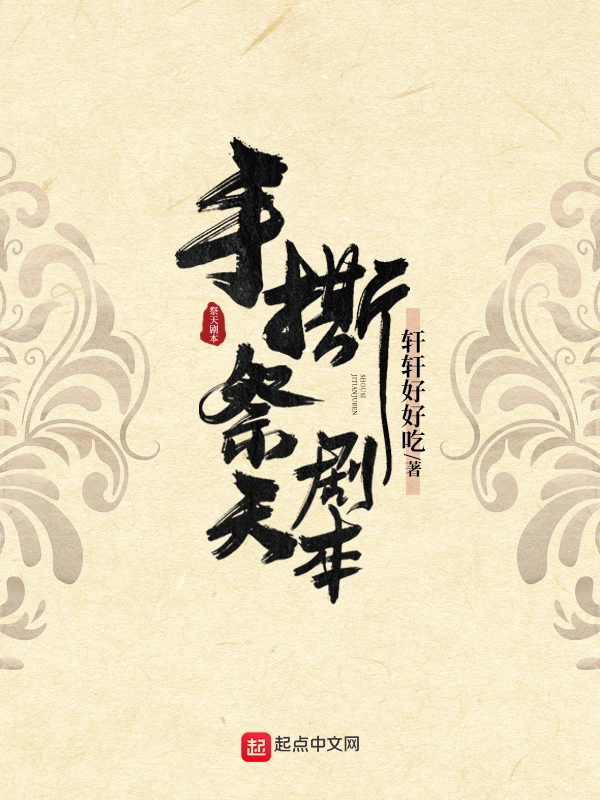 手撕
祭天
剧本
祭天剧本
SHOUSI
JITIANJUBEN
轩轩好好吃/著
起 起点中文网